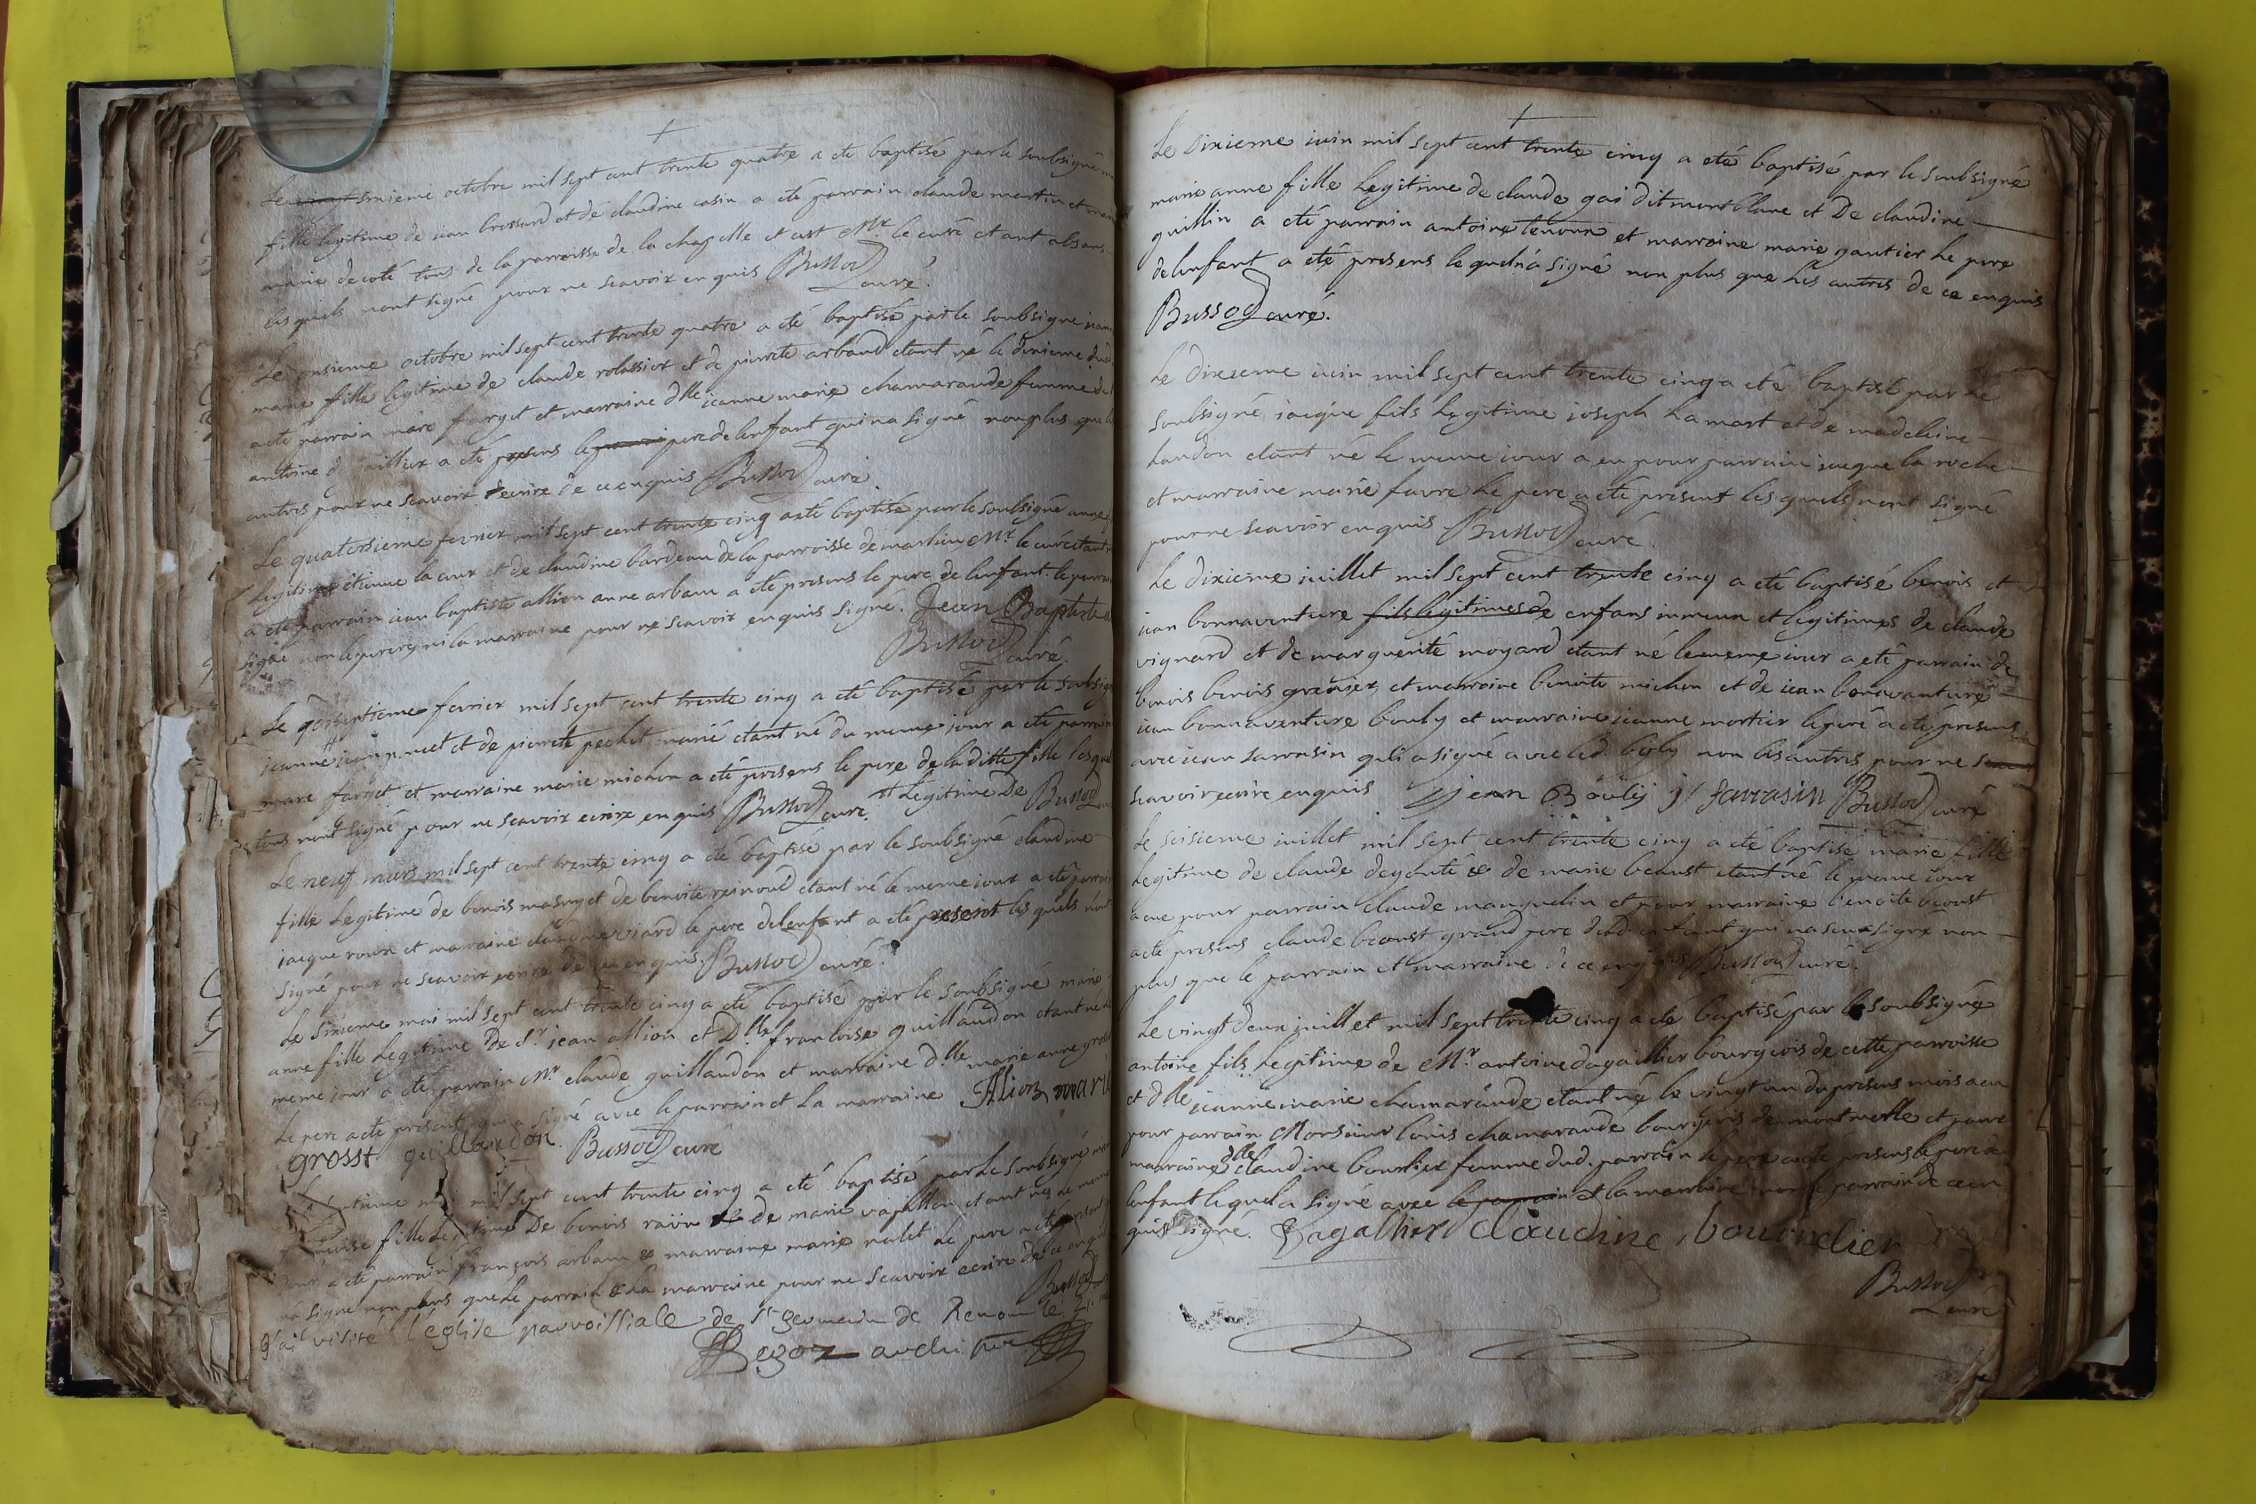 sixieme octobre mil sept cent trente quatre a eté baptisé par le soubsigné
fille legitime de iean brossard et de claudine cosin a eté parrain claude martin et
marie decoté tous de la parroisse de la chapelle et est Mr le curé etant absans
les quels nont signé pour ne scavoir enquis Bussod curé.
Le onsieme octobre mil sept cent trente quatre a eté baptisé par le soubsigné
marie fille legitime de claude rolassier et de pierrete arbaud etant né le dixieme dud
a eté parrain marc farget et marraine dlle ieanne marie chamarande femme de
antoine d a eté presens le pere de lenfant qui na signé non plus que
autres pour ne scavoir ecrire de ce enquis Bussod curé.
Le quatorsieme fevrier mil sept cent trente cinq a eté baptisé par le soubsigné anne
legitime etienne la cour et de claudine bardeau de la parroisse de marlieu Mr le curé etant
a eté parrain iean baptiste allion anne arbau a eté presens le pere de lenfant. le parrain
signé non le pere ny la marraine pour ne scavoir enquis signé. Jean Baptiste
Bussod curé.
Le fevrier mil sept cent trente cinq a eté baptisé par le soubsigné
ieanne et de pierrete pechet marié etant né du meme jour a eté parrain
marc farget et marraine marie michon a eté presens le pere de la ditte fille lesquels
tous nont signé pour ne scavoir ecrire enquis Bussod curé. legitime De Bussod
Le neuf mars mil sept cent trente cinq a eté baptisé par le soubsigné claudine
fille legitime de benois masuy et de benoite reinoud etant né le meme iour a eté parrain
iacque roux et marraine viard le pere de lenfant a eté present les quels nont
signé pour ne scavoir ecrire de ce enquis. Bussod curé.
Le sixieme mai mil sept cent trente cinq a eté baptisé par le soubsigné marie
anne fille legitime De Sr. jean allion et Dlle francoise guillaudon etant né
meme jour a eté parrain Mr claude guillaudon et marraine dlle marie anne
Le pere a eté present qui a signé avec le parrain et la marraine Alion marie
grosst guillaudon. Bussod curé
mil sept cent trente cinq a eté baptisé par le soubsigné
fille legitime De benois de marie vapillon etant né le meme
a eté parrain françois arbau & marraine marie mulet le pere a eté present
na signé non plus que le parrain & la marraine pour ne scavoir ecrire de ce enquis
Bussod
J'ai visité l'eglise parroissiale de St germain de Renom le
Begoz archi
Le sixieme iuin mil sept cent trente cinq a eté baptisé par le soubsigné
marie anne fille legitime de claude gai dit montblanc et De claudine
guillin a eté parrain antoine tenoux et marraine marie gautier le pere
de lenfant a eté presens le quel na signé non plus que les autres de ce enquis
Bussod curé.
Le dixieme iuin mil sept cent trente cinq a eté baptisé par le
soubsigné iacque fils legitime ioseph Lamort et de madeleine
Landon etant né le meme iour a eu pour parrain iacque la roche
et marraine marie favre le pere a eté present les quels nont signé
pour ne scavoir enquis Bussod curé.
Le dixieme iuillet mil sept cent trente cinq a eté baptisé benois et
iean bonnaventure fils legitimes de enfans iumeux et legitimes de claude
vignard et de marguerite moyard etant né le meme iour a eté parrain de
benois benois grenier et marraine benoite michon et de iean bonavanture
iean bonnaventure bouly et marraine ieanne mortier le pere a eté presens
avec iean sarrasin qui a signé avec led. boly non les autres pour ne
scavoir ecrire enquis jean Bouly j. Sarrasin Bussod curé
Le seisieme iuillet mil sept cent trente cinq a eté baptisé marie fille
legitime de claude degouté & de marie beoust etant né le meme iour
a eue pour parrain claude manguelin et pour marraine benoite beoust
a eté presens claude beoust grand pere dud. enfant qui na sceu signé non
plus que le parrain et marraine de ce enquis Bussod curé.
Le vingt deux iuillet mil sept trente cinq a eté baptisé par le soubsigné
antoine fils legitime de Mr. antoine dagallier bourgeois de cette parroisse
et dlle ieanne marie chamarande etant né le vingt un du presens mois a eu
pour parrain Monsieur louis chamarande bourgeois de montmerle et pour
marraine dlle claudine bourdier femme dud. parrain le pere a eté presens le pere de
lenfant lequel a signé avec le parrain et la marraine non le parrain de ce en
quis signé. Dagallier Claudine bourdier
Bussod
curé